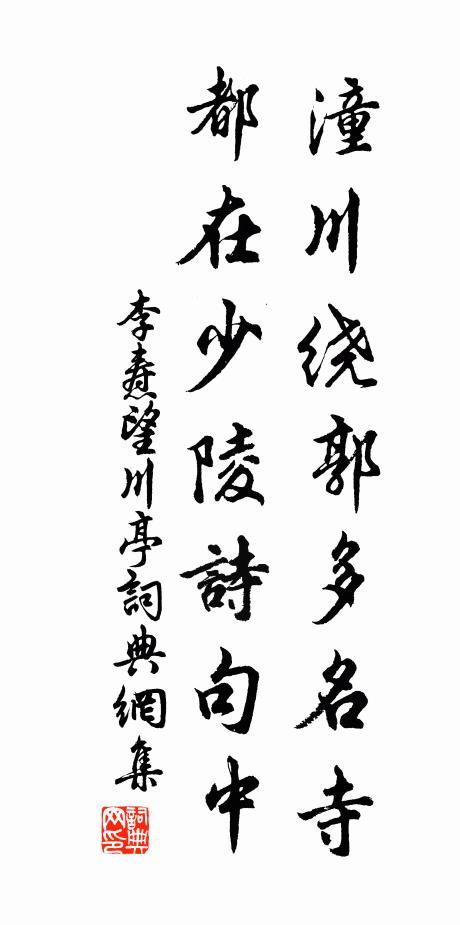 潼川绕郭多名寺
都在少陵詩句中
李焘望川亭詞典網集
詞典
网印